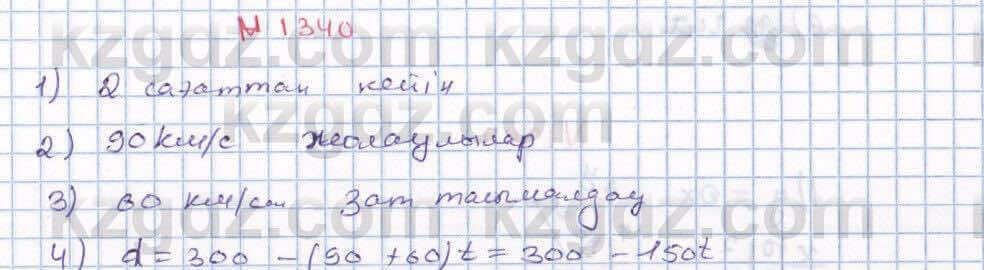 № 1340
1) 2 сағаттан кейін
2) 90 км/с жолаушылар
3) 60 км/сағ Зат тасымалдау
4) d = 300 - (90 + 60)t = 300 - 150t